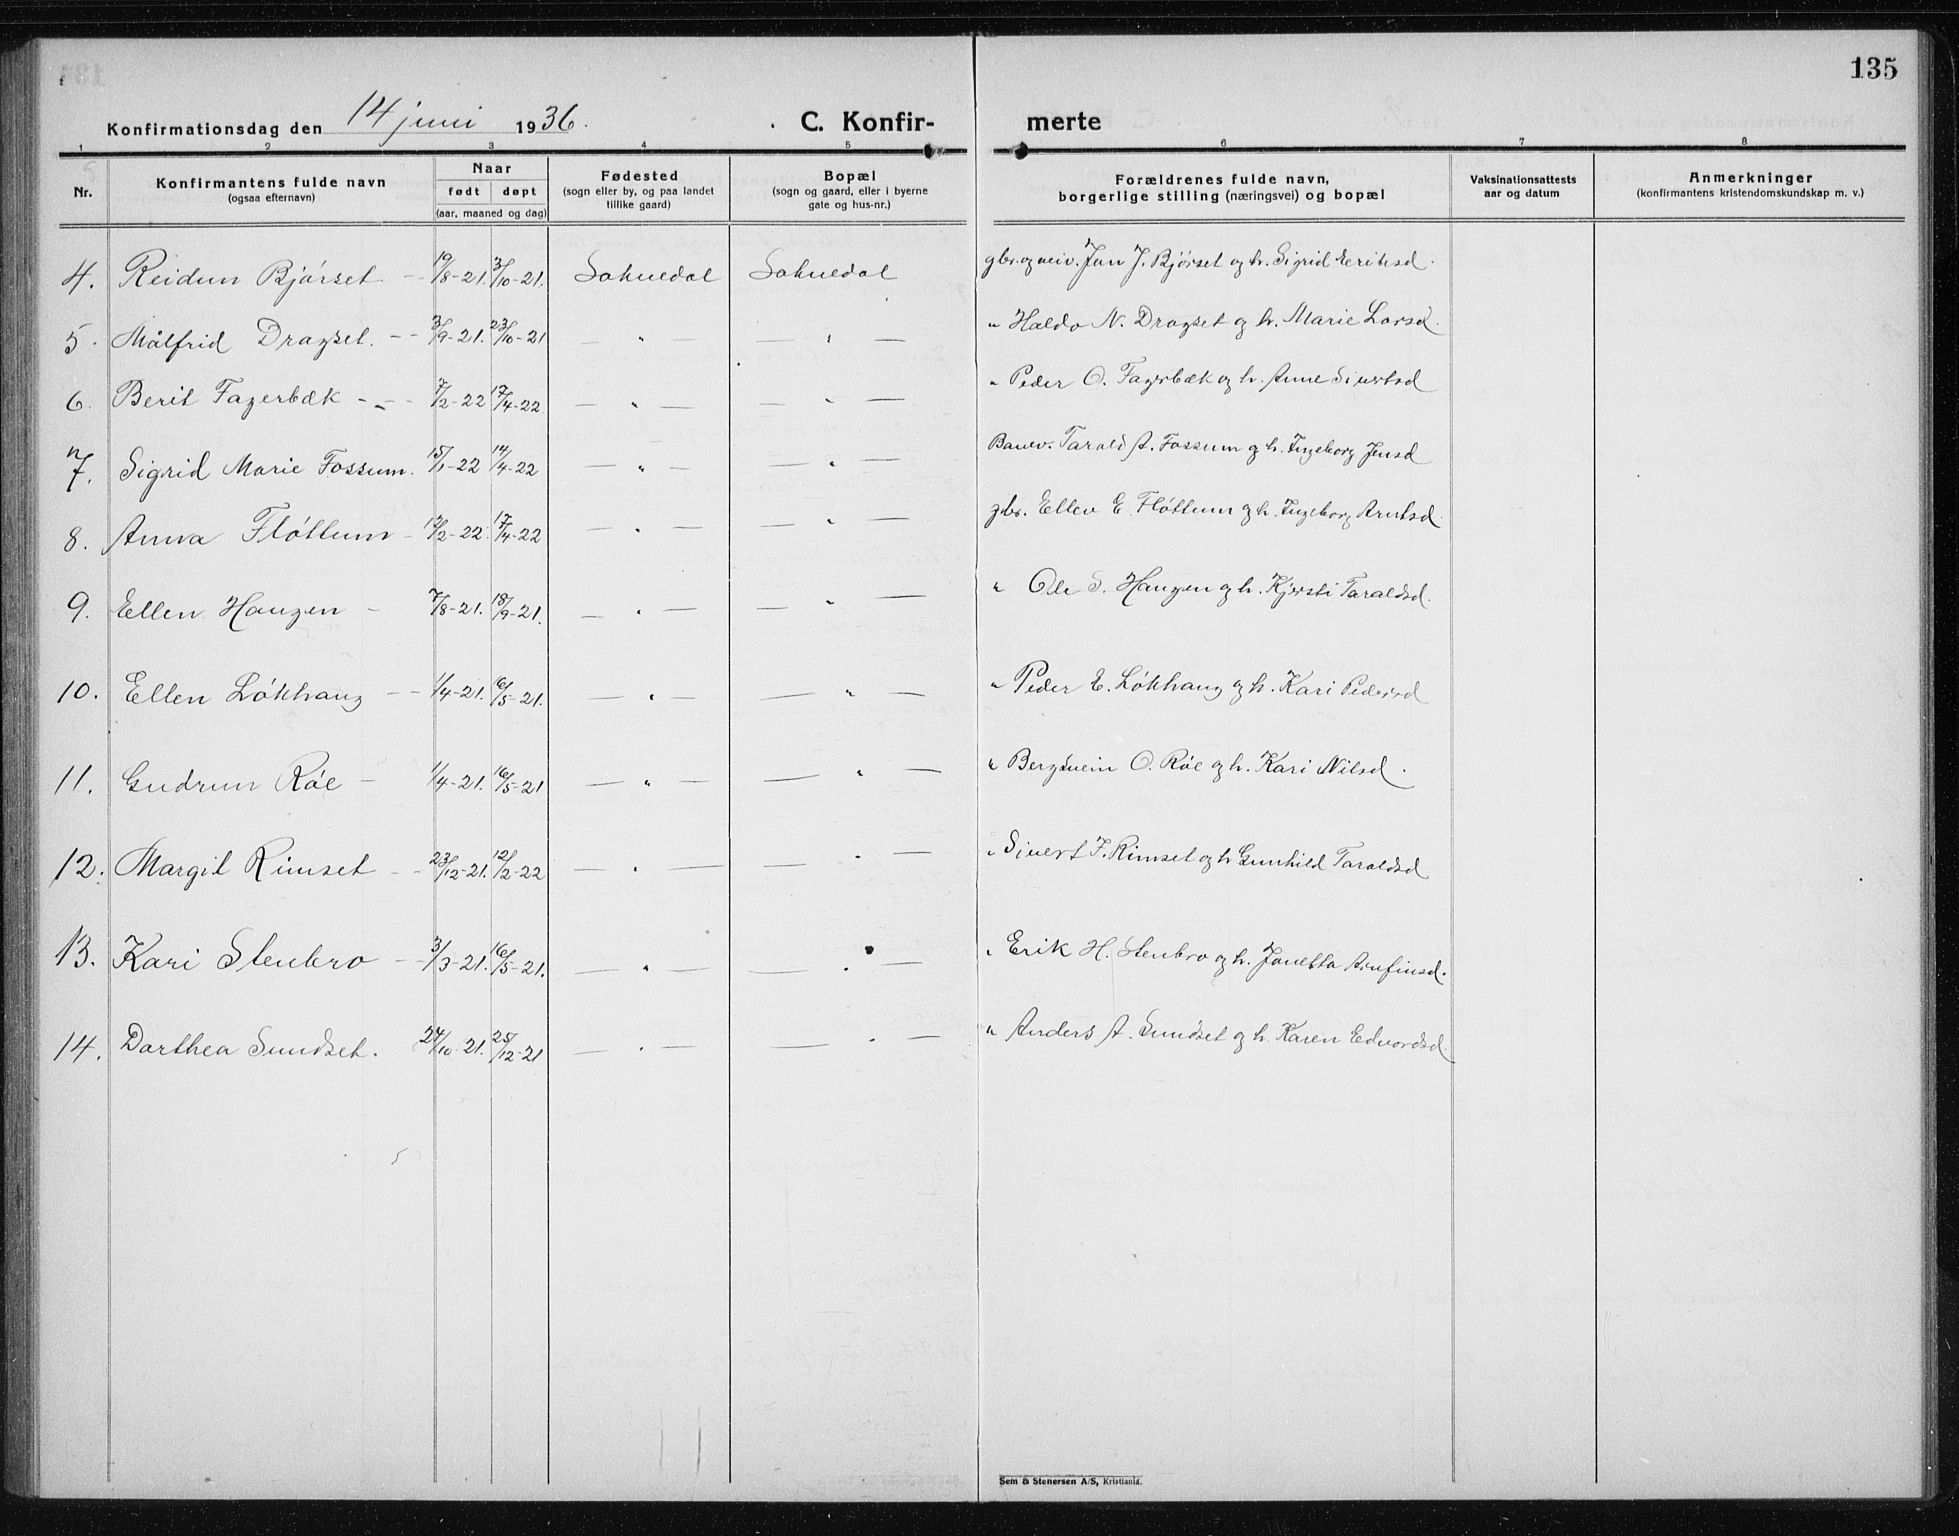 135
Konfirmationsdag den 14 juni 1936.
C. Konfirmerte
1 2 3 4 5 6 7 8
Nr.
Konfirmantens fulde navn
(ogsaa efternavn)
Naar
født døpt
(aar, maaned og dag)
Fødested
(sogn eller by, og paa landet
tillike gaard)
Bopæl
(sogn og gaard, eller i byerne
gate og hus-nr.)
Forældrenes fulde navn,
borgerlige stilling (næringsvei) og bopæl
Vaksinationsattests
aar og datum
Anmerkninger
(konfirmantens kristendomskundskap m. v.)
4. Reidun Bjørset - 19/8-21. 3/10-21. Soknedal Soknedal gbr. og Jon J. Bjørset og h. Sigrid Eriksd.
5. Målfrid Dragset. - - 3/9-21. 23/10-21 — " — — " — " Haldo N. Dragset og h. Marie Larsd.
6. Berit Fagerbæk - - - 7/2-22 17/4-22 — " — — " — " Peder O. Fagerbæk og h. Anne Sivertsd
7. Sigrid Marie Fossum. 15/1-22 14/4-22 — " — — " — Banev. Tarald A. Fossum og h. Ingeborg Jensd
8. Anna Fløttum - 12/2-22 17/4-22 — " — — " — gbr. Ellev E. Fløttum og h. Ingeborg Arntsd.
9. Ellen Haugen - 7/8-21. 18/9-21. — " — — " — " Ole S. Haugen og h. Kjersti Taraldsd.
10. Ellen Løkhaug - - 1/4-21. 16/5-21. — " — — " — " Peder E. Løkhaug og h. Kari Pedersd
11. Gudrun Røe - 1/4-21. 16/5-21 — " — — " — " Bergsvein O. Røe og h. Kari Nilsd.
12. Margit Rimset - - 23/12-21. 12/2-22 — " — — " — " Sivert F. Rimset og h Gunhild Taraldsd
13. Kari Stenbro - 3/3-21. 16/5-21. — " — — " — " Erik H. Stenbro og h. Jonetta Arnfinsd.
14. Dorthea Sundset. 24/10-21. 25/12-21 — " — — " — " Anders A. Sundset og h. Karen Edvardsd.
Sem & Stenersen A/S, Kristiania.